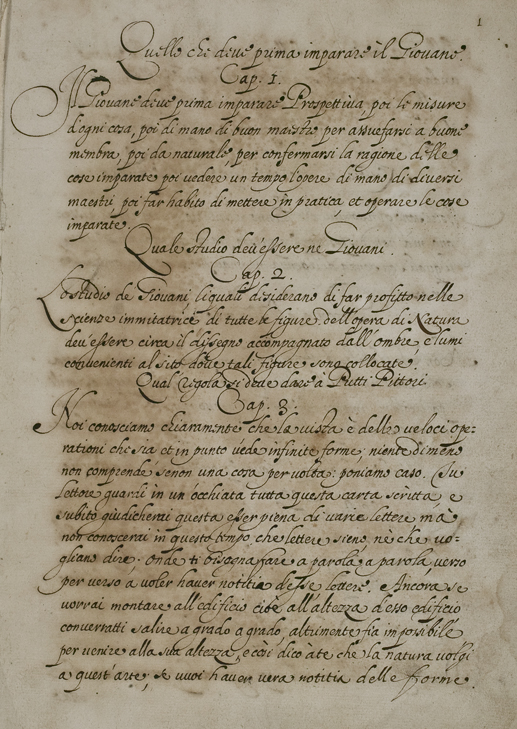 1
Quello che deve prima imparare il Giovane.
Cap. 1.
Il Giovane deve prima imparare Prospettiva, poi le misure
d'ogni cosa, poi di mano di buon maestro per assuefarsi a buone
membra, poi da naturale, per confermarsi la ragione delle
cose imparate, poi vedere un tempo l'opere di mano di diversi
maestri, poi far habito di mettere in pratica, et operare le cose
imparate.
Quale studio deu'essere ne Giovani.
Cap. 2.
Lo studio de Giovani, li quali desiderano di far profitto nelle
scienze immitatrici di tutte le figure dell'opera di Natura
deu'essere circa il dissegno accompagnato dall'ombre, e lumi
convenienti al sito, dove tali figure sono collocate.
Qual regola si deve dare à Putti Pittori
Cap. 3.
Noi conosciamo chiaramente che la vista è delle veloci ope-
rationi che sia et in punto vede infinite forme, niente di meno
non comprende se non una cosa per volta: poniamo caso. Tu
lettore guardi in un'occhiata tutta questa carta scritta e
subito giudicherai questa esser piena di varie lettere mà
non conoscerai in questo tempo che lettere sieno, ne che vo-
gliano dire: onde ti bisogna fare a parola, a parola, verso
per verso a voler haver notitia d'esse lettere. Ancora se
vorrai montare all'edificio cioè all'altezza d'esso edificio
converratti salire a grado a grado, altrimente fia impossibile
per venire alla sua altezza, e così dico à te che la natura volgi
a quest'arte, se vuoi haver vera notitia delle forme